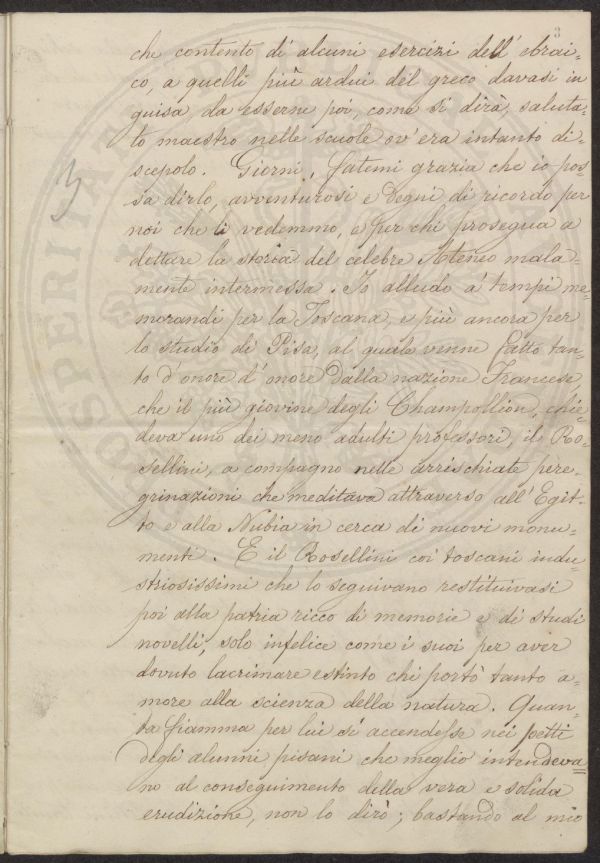 che contento di alcuni esercizi dell' ebrai=
co, a quelli più ardui del greco davasi in
guisa, da esserne poi, come si dirà, saluta=
to maestro nelle scuole ov' era intanto di=
scepolo. Giorni, fatemi grazia che io pos=
sa dirlo, avventurosi e degni di ricordo per
noi che li vedemmo, e per chi prosegua a
dettare la storia del celebre Ateneo mala=
mente intermessa. Io alludo a' tempi me=
morandi per la Toscana, e più ancora per
lo studio di Pisa, al quale venne fatto tan=
to d' onore d' onore dalla nazione Francese,
che il più giovine degli Champollion, chie=
deva uno dei meno adulti professori, il Ro=
sellini, a compagno nelle arrischiate pere=
grinazioni che meditava attraverso all' Egit=
to e alla Nubia in cerca di nuovi monu=
menti. E il Rosellini coi toscani indu=
striosissimi che lo seguivano restituivasi
poi alla patria ricco di memorie e di studi
novelli, solo infelice come i suoi per aver
dovuto lacrimare estinto chi portò tanto a=
more alla scienza della natura. Quan=
ta fiamma per lui si accendesse nei petti
degli alunni pisani che meglio intendeva=
no al conseguimento della vera e solida
erudizione, non lo dirò; bastando al mio